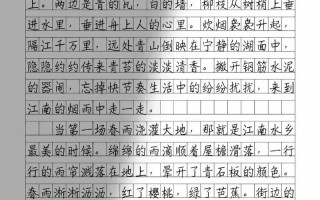 上。两边是青的瓦，白的墙，柳枝从树梢上垂
进水里，垂进舟上人的心里。炊烟袅袅升起，
隔江千万里，远处青山倒映在宁静的湖面中，
隐隐约约传来青苔的淡淡清香。搬开钢筋水泥
的嚣闹，忘掉快节奏生活中的纷纷扰扰，来到
江南的烟雨中走一走。
当第一场春雨浇灌大地，那就是江南水乡
最美的时候。绵绵的雨滴顺着屋檐滑落，一行
行的雨帘溅落在地上，晕开了青石板的颜色。
春雨淅淅沥沥，红了樱桃，绿了芭蕉。街边的